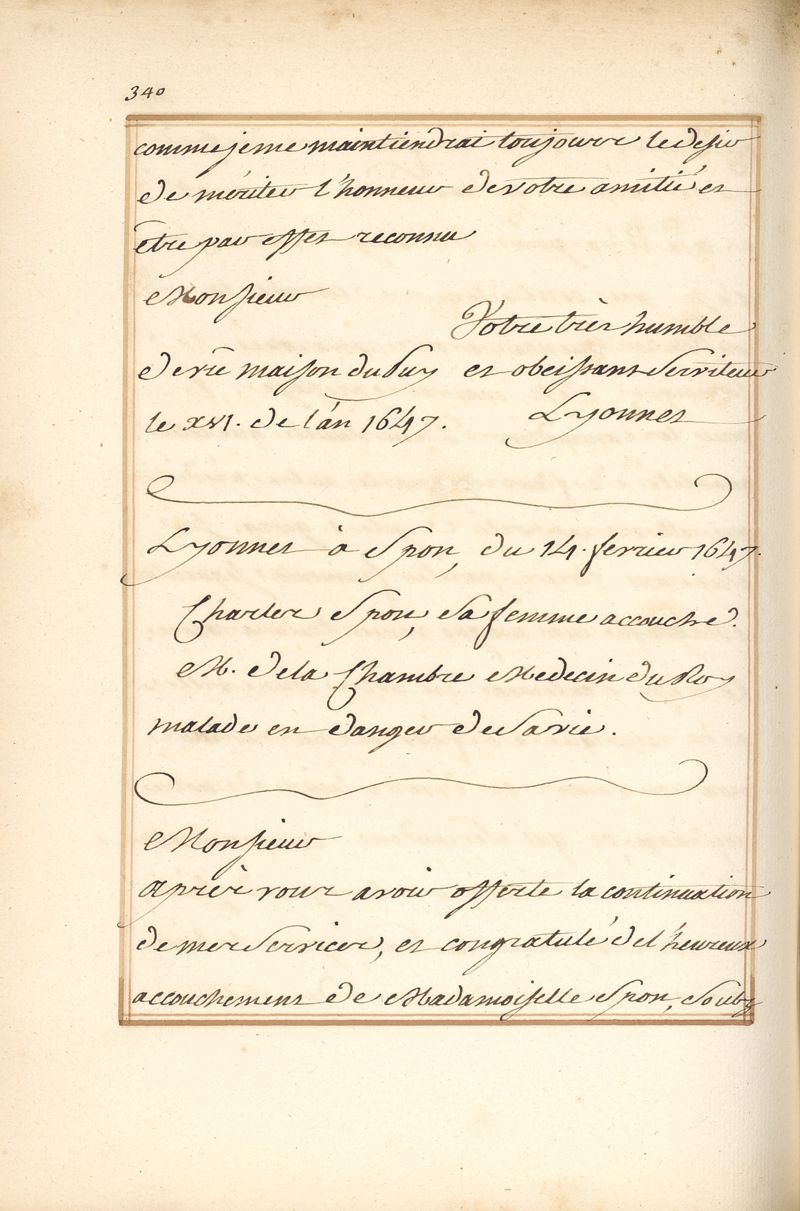 340
comme je me maintiendrai toujours le desir
de meriter l'honneur de votre amitié et
être par effet reconnu
Monsieur
Votre très humble
de vre maison du Puy et obeissant Serviteur
le XVI. de l'án 1647. Lyonnet
Lyonnet à Spon, du 14. fevrier 1647.
Charles Spon, Sa femme accouche.
M. de la Chambre Medecin du Roy
malade en danger de Sa vie.
Monsieur
après vour avoir offerte la continuation
de mes Services, et congratulé de l'heureux
accouchement de Madamoiselle Spon,